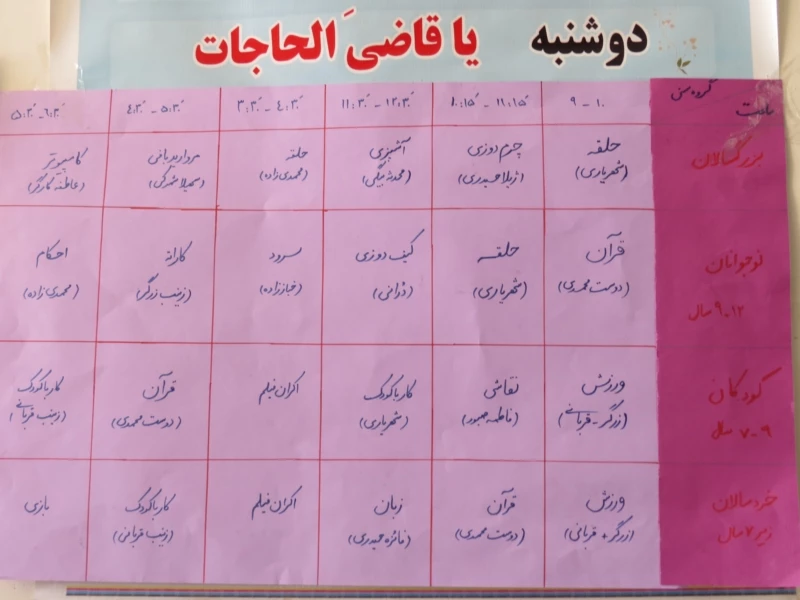 دوشنبه یا قاضیَ الحاجات
گروه سنی
ساعت
۹ - ۱۰
۱۰:۱۵ - ۱۱:۱۵
۱۱:۳۰ - ۱۲:۳۰
۳:۳۰ - ۴:۳۰
۴:۳۰ - ۵:۳۰
۵:۳۰ - ۶:۳۰
بزرگسالان
حلقه
(شهریاری)
چرم دوزی
(زیلا حیدری)
آشپزی
(محدثه بیگی)
حلقه
(محمدی زاده)
مروارید بافی
کامپیوتر
(عاطفه کارگر)
نوجوانان
۹-۱۲ سال
قرآن
(دوست محمدی)
حلقه
(شهریاری)
کیف دوزی
(دُرانی)
سرود
(خباززاده)
کاراته
(زینب زرگر)
احکام
(محمدی زاده)
کودکان
۷-۹ سال
ورزش
(زرگر - قربانی)
نقاشی
(فاطمه صبور)
کار با کودک
(شهریاری)
اکران فیلم
قرآن
(دوست محمدی)
کار با کودک
(زینب قربانی)
خردسالان
زیر ۷ سال
ورزش
(زرگر + قربانی)
قرآن
(دوست محمدی)
زبان
(فائزه حیدری)
اکران فیلم
کار با کودک
(زینب قربانی)
بازی